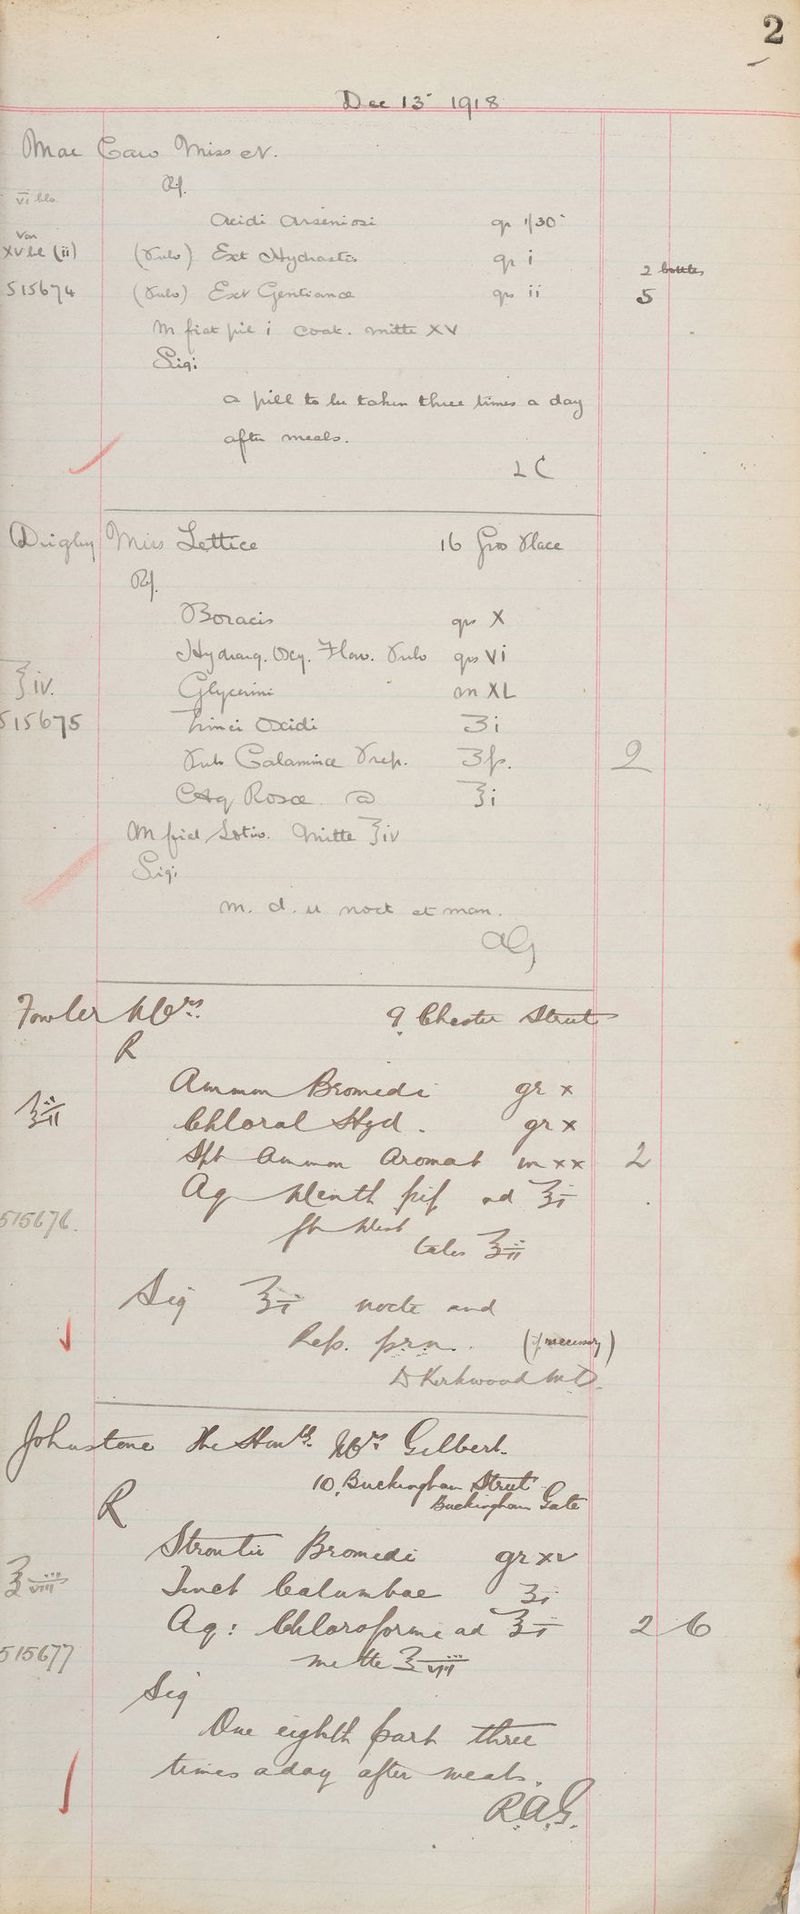 2
Dec 13 1918
Mac Caw Miss N.
Rf.
vi
Acidi Arseniosi gr 1/30
XV (ii) (Pulv) Ext Hydrastis gr i
2 bottles
515674 (Pulv) Ext Gentianae grs ii 5
M fiat pil i coat. mitte XV
Sig:
a pill to be taken three times a day
after meals.
LC
Digby Miss Lettice 16 Gros Place
Rf.
Boracis grs X
Hydrarg. Oxy. Flav. Pulv grs VI
℥iv. Glycerini m XL
515675 Zinci Oxidi ʒi
Pulv Calaminae Prep. ʒfs. 2
Aq Rosae @ ℥i
M fiat Lotio. Mitte ℥iv
Sig:
m. d. u noct et man.
AG
Fowler Mrs. 9 Chester Street
R
Ammon Bromidi gr x
℥ii Chloral Hyd. gr x
Spt Ammon Aromat m xx 2
Aq Menth pip ad ℥i
515676. ft Mist
tales ℥ii
Sig ℥i nocte and
Rep. prn. (if necessary)
D Kirkwood MD.
Johnstone The Honble. Mrs Gilbert.
10, Buckingham Street
Buckingham Gate
R
Strontii Bromidi gr xv
℥viii Tinct Calumbae ʒi
Aq: Chloroformi ad ℥i 2 6
515677 mitte ℥viii
Sig
One eighth part three
times a day after meals.
R.A.G.